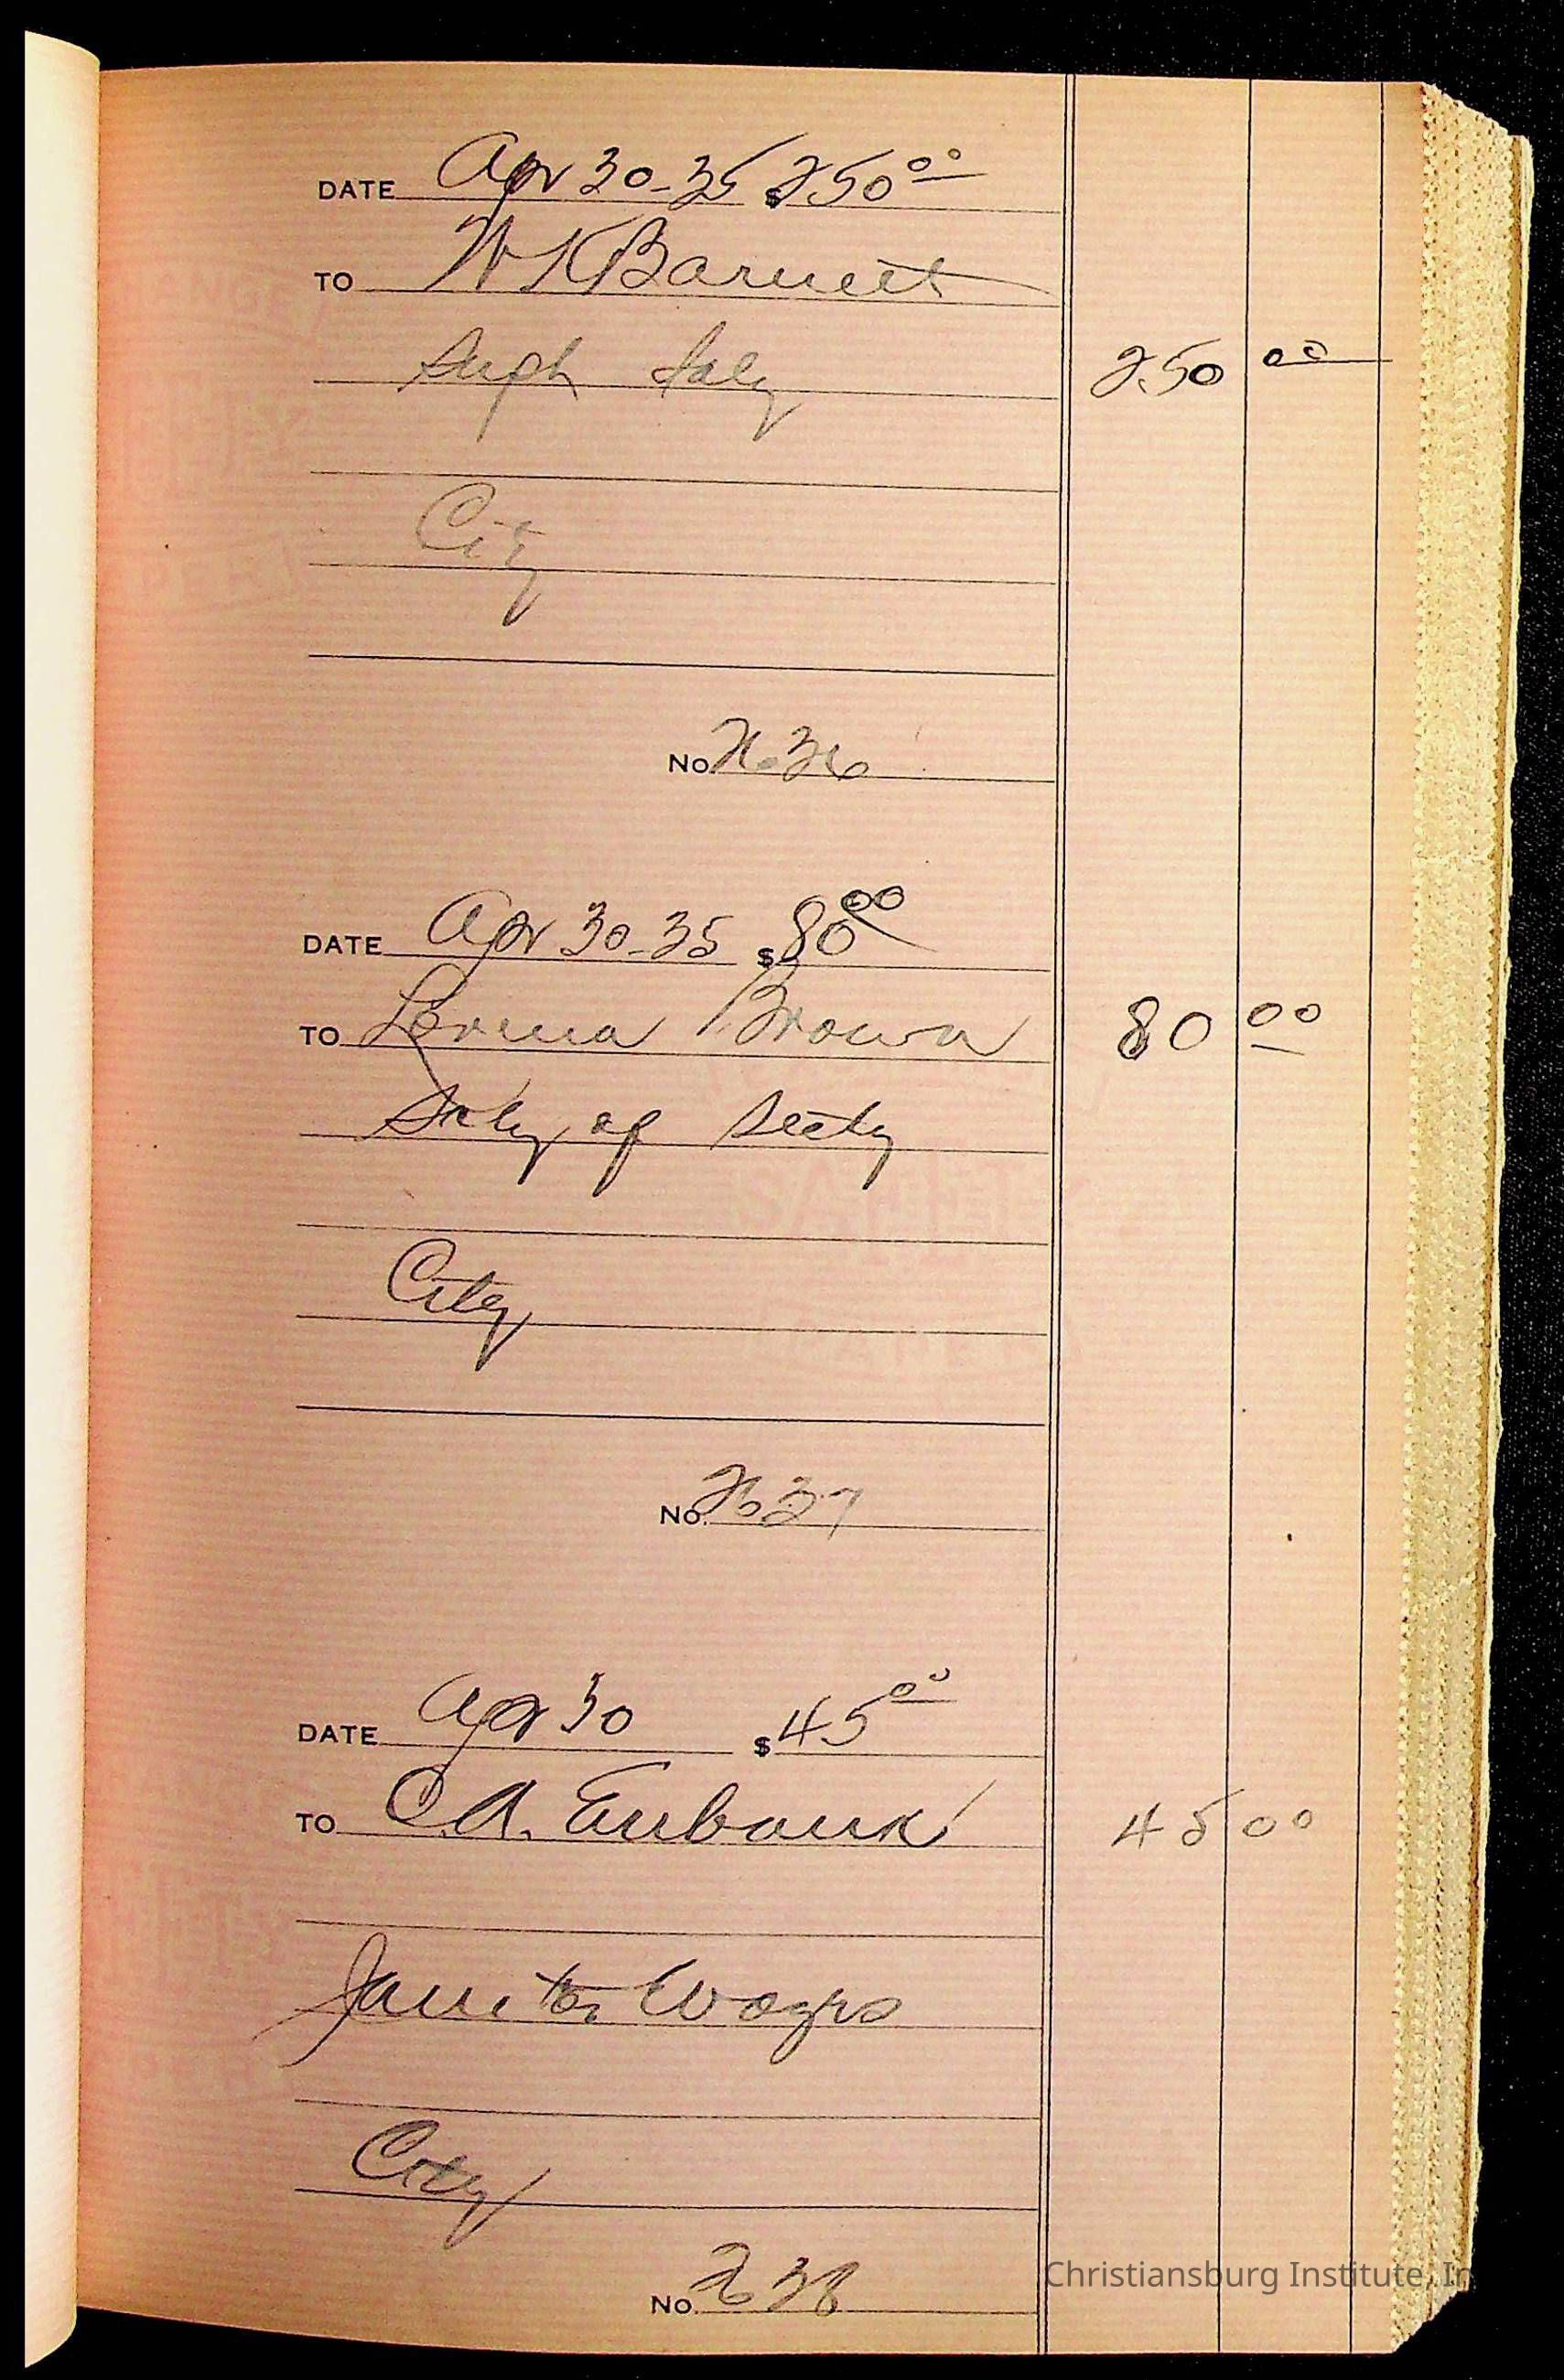 DATE Apr 30-35 $250 00
TO W K Barnett
Supt Saly 250 00
City
No 2636
DATE Apr 30-35 $80 00
TO Lorena Brown 80 00
Saly of Secty
City
No. 2637
DATE Apr 30 $45 00
TO C.A. Eubank 45 00
Janitor Wages
City
No. 2638
Christiansburg Institute, In